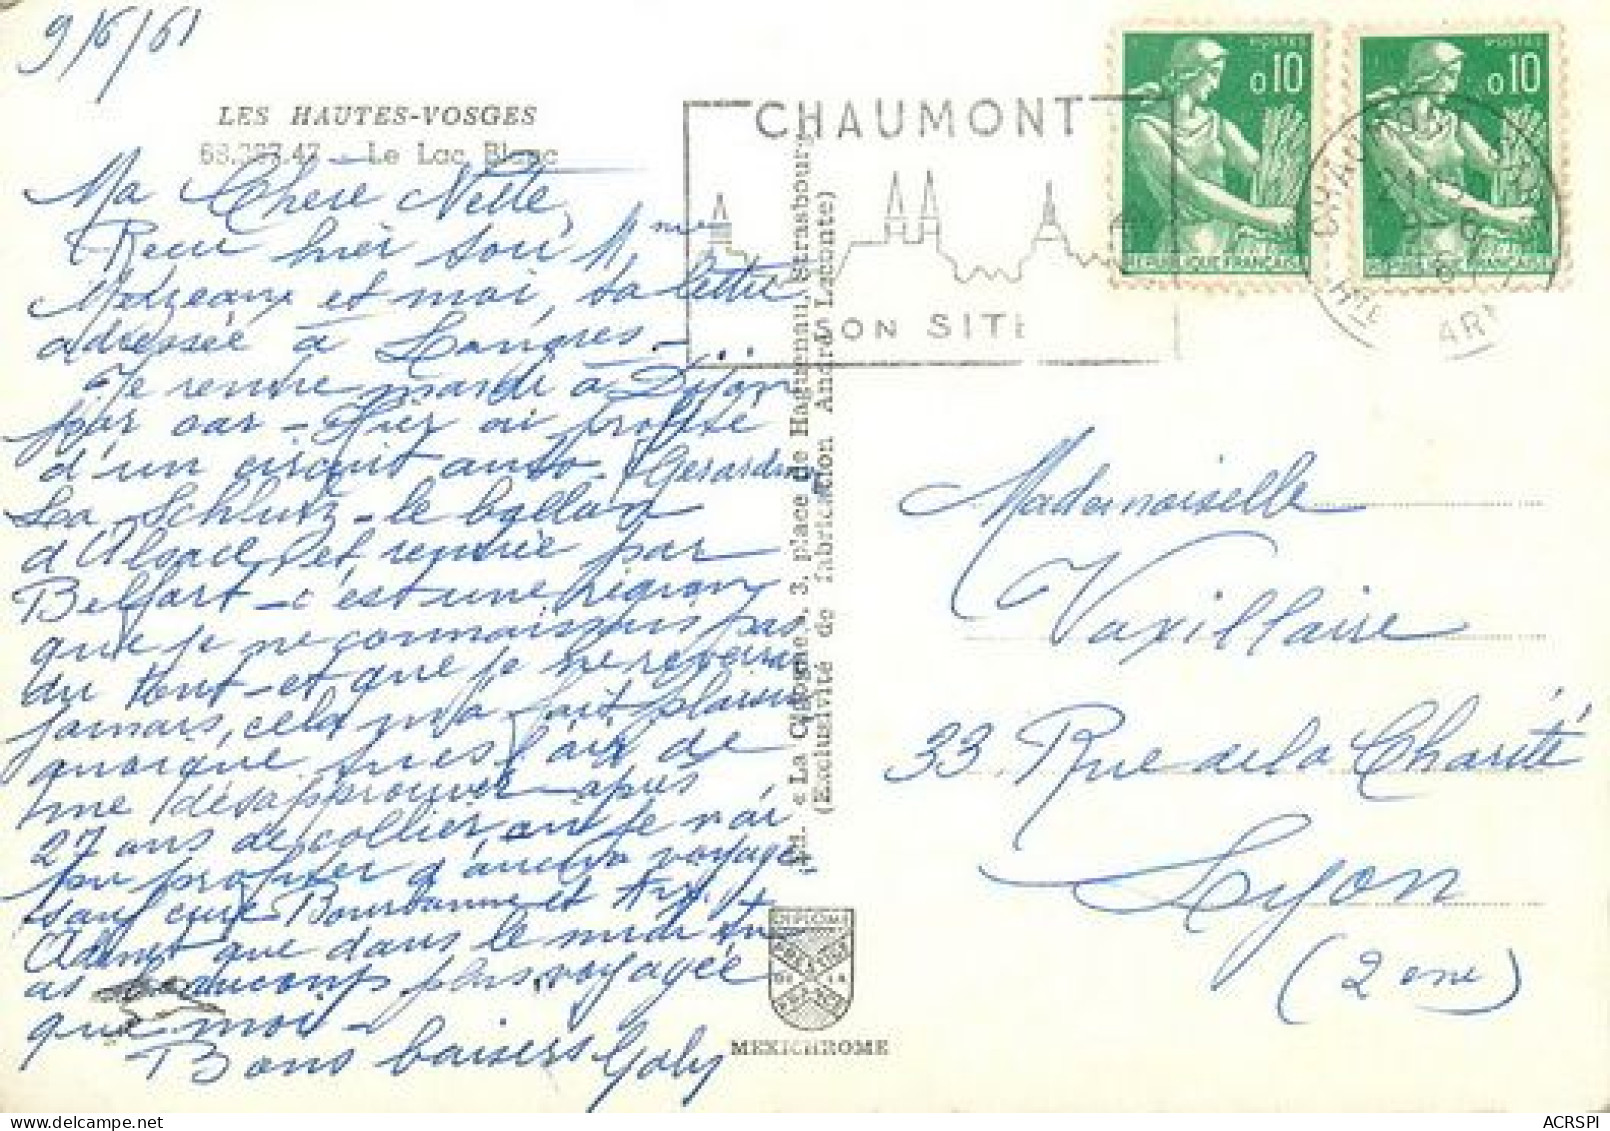 9/6/61
LES HAUTES-VOSGES
Le Lac Blanc
Ma Chère Nette,
Reçu hier soir
et moi, ta lettre
adressée à Langres - ...
Je rentre mardi à Dijon
par car - Hier ai profité
d'un circuit auto (Gerardm
La Schlutz - le ballon
d'Alsace et rentrée par
Belfort - c'est une région
que je ne connaissais pas
du tout - et que je ne reverrai
jamais, cela m'a fait plaisir
quoique l'air de
me désapprouver - après
27 ans de collier où je n'ai
pu profiter d'aucun voyage
sauf cure Bourbonne et
que dans le midi tu
as beaucoup plus voyagée
que moi -
Bons baisers Gaby
Ed. « La Cigogne », 3, place de Haguenau, Strasbourg
(Exclusivité de fabrication André Leconte)
DIPLOME
PRESTIGE
DE LA
FRANCE
MEXICHROME
CHAUMONT
SON SITE
POSTES
0,10
REPUBLIQUE FRANÇAISE
POSTES
0,10
REPUBLIQUE FRANÇAISE
CHAUMONT
HTE MARNE
Mademoiselle
Vaxillaire
33 Rue de la Charité
Lyon
(2ème)
ACRSPI